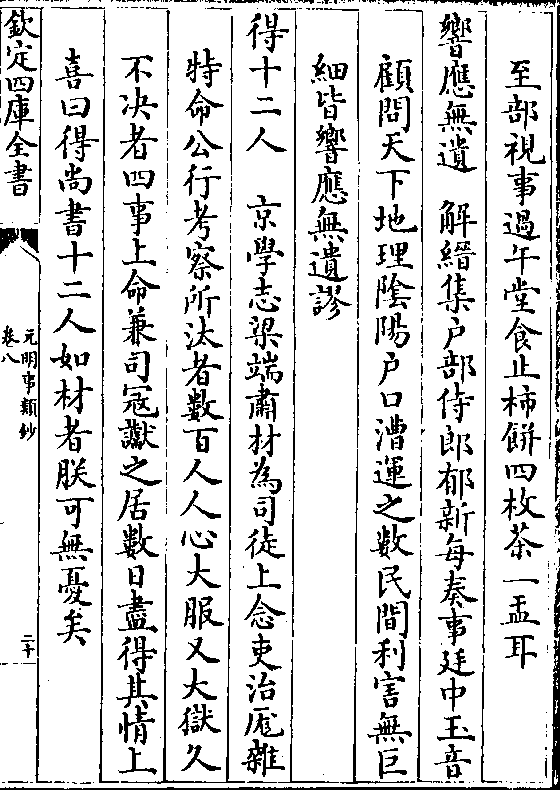 至部視事過午堂食止柿餅四枚茶一盂耳
響應無遺　解縉集戸部侍郎郁新每奏事廷中玉音
顧問天下地理陰陽戸口漕運之數民間利害無巨
細皆響應無遺謬
得十二人　京學志梁端肅材為司徒上念吏治厖雜
特命公行考察所汰者數百人人心大服又大獄久
不决者四事上命兼司寇讞之居數日盡得其情上
喜曰得尚書十二人如材者朕可無憂矣
欽定四庫全書
元明事類鈔
卷八
二十